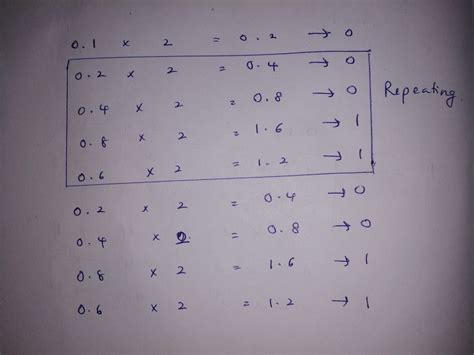 0.1 × 2 = 0.2 → 0
0.2 × 2 = 0.4 → 0
0.4 × 2 = 0.8 → 0 Repeating.
0.8 × 2 = 1.6 → 1
0.6 × 2 = 1.2 → 1
0.2 × 2 = 0.4 → 0
0.4 × 2 = 0.8 → 0
0.8 × 2 = 1.6 → 1
0.6 × 2 = 1.2 → 1